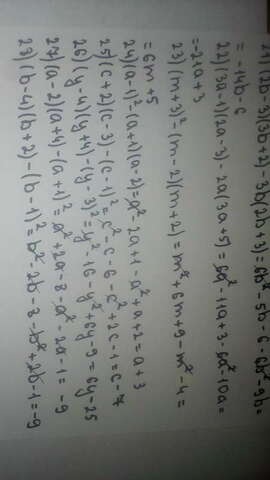 21) (2b-3)(3b+2)-3b(2b+3)=6b²-5b-6-6b²-9b=
=-14b-6
22) (3a-1)(2a-3)-2a(3a+5)=6a²-11a+3-6a²-10a=
=-21a+3
23) (m+3)²-(m-2)(m+2)=m²+6m+9-m²-4=
=6m+5
24) (a-1)²-(a+1)(a-2)=a²-2a+1-a²+a+2=a+3
25) (c+2)(c-3)-(c-1)²=c²-c-6-c²+2c-1=c-7
26) (y-4)(y+4)-(y-3)²=y²-16-y²+6y-9=6y-25
27) (a-2)(a+4)-(a+1)²=a²+2a-8-a²-2a-1=-9
28) (b-4)(b+2)-(b-1)²=b²-2b-8-b²+2b-1=-9